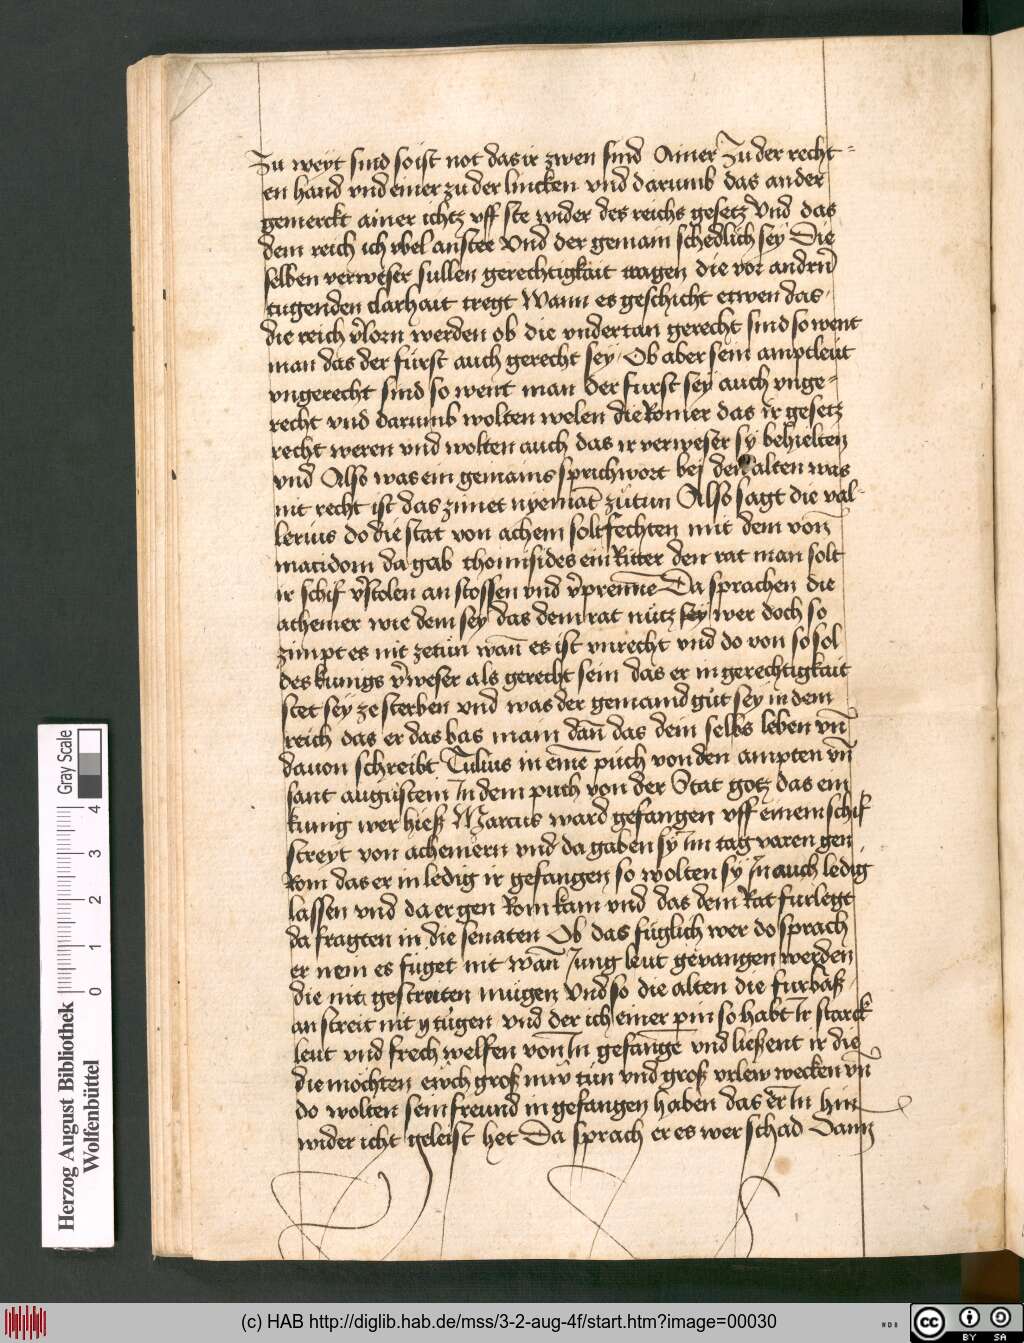 Zu weyt sind so ist not das ir zwen sind Ainer Zu der recht=
en hand vnd einer zu der lincken vnd darumb das ander
gemerckt ainer ichtz vff ste wider des reichs gesetz Vnd das
dem reich ich vbel anstee Vnd der gemain schedlich sey Die
selben verweser sullen gerechtigkait tragen die vor andrn̄
tugenden clarhait tregt Wann es geschicht etwen das
die reich v̄lorn werden ob die vndertan gerecht sind so went
man das der fürst auch gerecht sey Ob aber sein amptleüt
vngerecht sind so went man der furst sey auch vnge=
recht vnd darumb wolten welen die Romer das ir gesetz
recht weren vnd wolten auch das ir verweser sy behielten
vnd Also was ein gemains sprichwort bej den alten was
nit recht ist das zimet nyemāt zütun Also sagt die val=
lerius do die stat von achem solt fechten mit dem von
macidom da gab thomisides ein Ritter den rat man solt
ir schif v̄stolen an stossen vnd v̄prennē Da sprachen die
achemer wie dem sey das dem rat nütz sey wer doch so
zimpt es nit zetün wan̄ es ist vnrecht vnd do von so sol
des kunigs v̄weser als gerecht sein das er in gerechtigkait
stet sey ze sterben vnd was der gemaind gůt sey in dem
reich das er das bas main dan̄ das dein selbs leben vn̄
dauon schreibt Tulius in eīnē půch von den ampten vn̄
sant augustein In dem puch von der Stat gotz das ein
kunig wer hieß Marcus ward gefangen vff einem schif
streyt von achemern vnd da gaben sy Im tag varen gen
Rom das er in ledig ir gefangen so wolten sy In auch ledig
lassen vnd da er gen Rom kam vnd das dem Rat furlegt
da fragten in die senaten Ob das füglich wer do sprach
er nem es füget nit wan̄ Jung leut gevangen werden
die nit gestreiten mügen vnd so die alten die furbaß
an streit nit ytügen vnd der ich einer pin so habt Ir starck
leut vnd frech welfen von In gefangē vnd ließent ir die
die mochten ewch groß mw tün vnd groß vrlew wecken vn̄
do wolten sein freund in gefangen haben das er In hin
wider icht geleist het Da sprach er es wer schad Dann
Herzog August Bibliothek
Wolfenbüttel
0 1 2 3 4
Gray Scale
(c) HAB http://diglib.hab.de/mss/3-2-aug-4f/start.htm?image=00030
WDB
cc BY SA